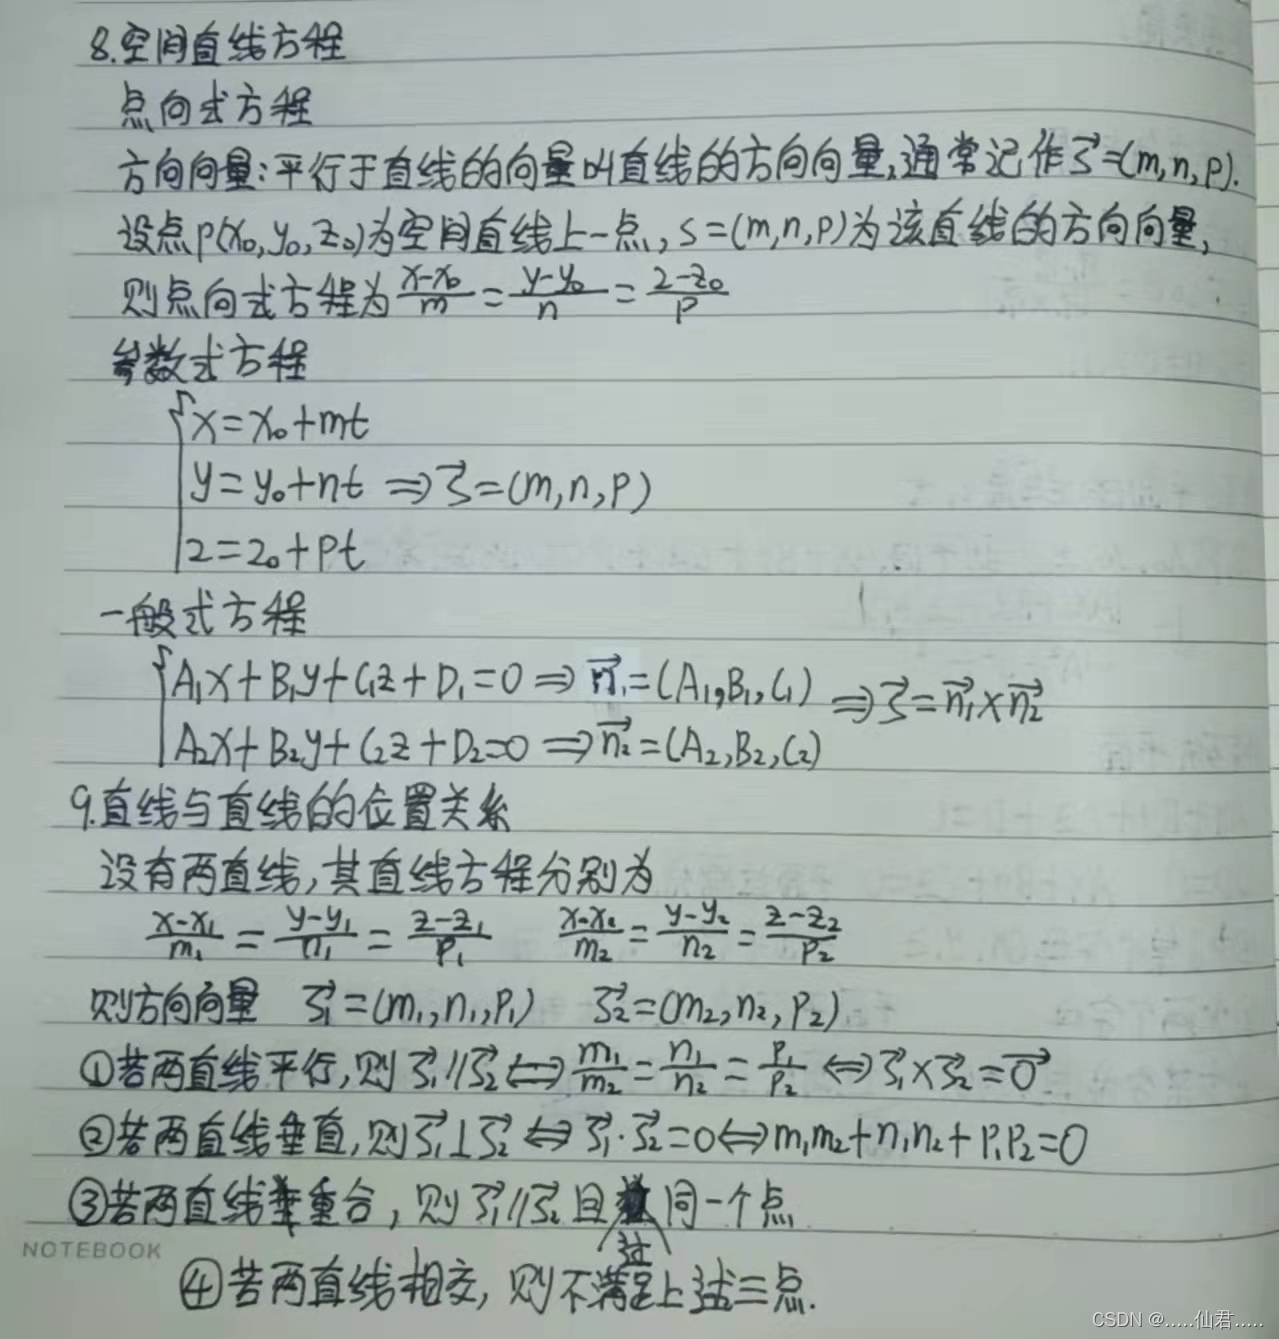 8.空间直线方程
点向式方程
方向向量:平行于直线的向量叫直线的方向向量,通常记作s⃗=(m,n,p).
设点p(x₀,y₀,z₀)为空间直线上一点,s=(m,n,p)为该直线的方向向量,
则点向式方程为 (x-x₀)/m = (y-y₀)/n = (z-z₀)/p
参数式方程
{x=x₀+mt
y=y₀+nt ⇒ s⃗=(m,n,p)
z=z₀+pt
一般式方程
{A₁x+B₁y+C₁z+D₁=0 ⇒ n₁⃗=(A₁,B₁,C₁) ⇒ s⃗=n₁⃗×n₂⃗
A₂x+B₂y+C₂z+D₂=0 ⇒ n₂⃗=(A₂,B₂,C₂)
9.直线与直线的位置关系
设有两直线,其直线方程分别为
(x-x₁)/m₁ = (y-y₁)/n₁ = (z-z₁)/p₁ (x-x₂)/m₂ = (y-y₂)/n₂ = (z-z₂)/p₂
则方向向量 s₁⃗=(m₁,n₁,p₁) s₂⃗=(m₂,n₂,p₂)
①若两直线平行,则s₁⃗//s₂⃗ ⇔ m₁/m₂ = n₁/n₂ = p₁/p₂ ⇔ s₁⃗×s₂⃗=0⃗
②若两直线垂直,则s₁⃗⊥s₂⃗ ⇔ s₁⃗·s₂⃗=0 ⇔ m₁m₂+n₁n₂+p₁p₂=0
③若两直线重合,则s₁⃗//s₂⃗且过同一个点
NOTEBOOK
④若两直线相交,则不满足上述三点.
CSDN @.....仙君.....